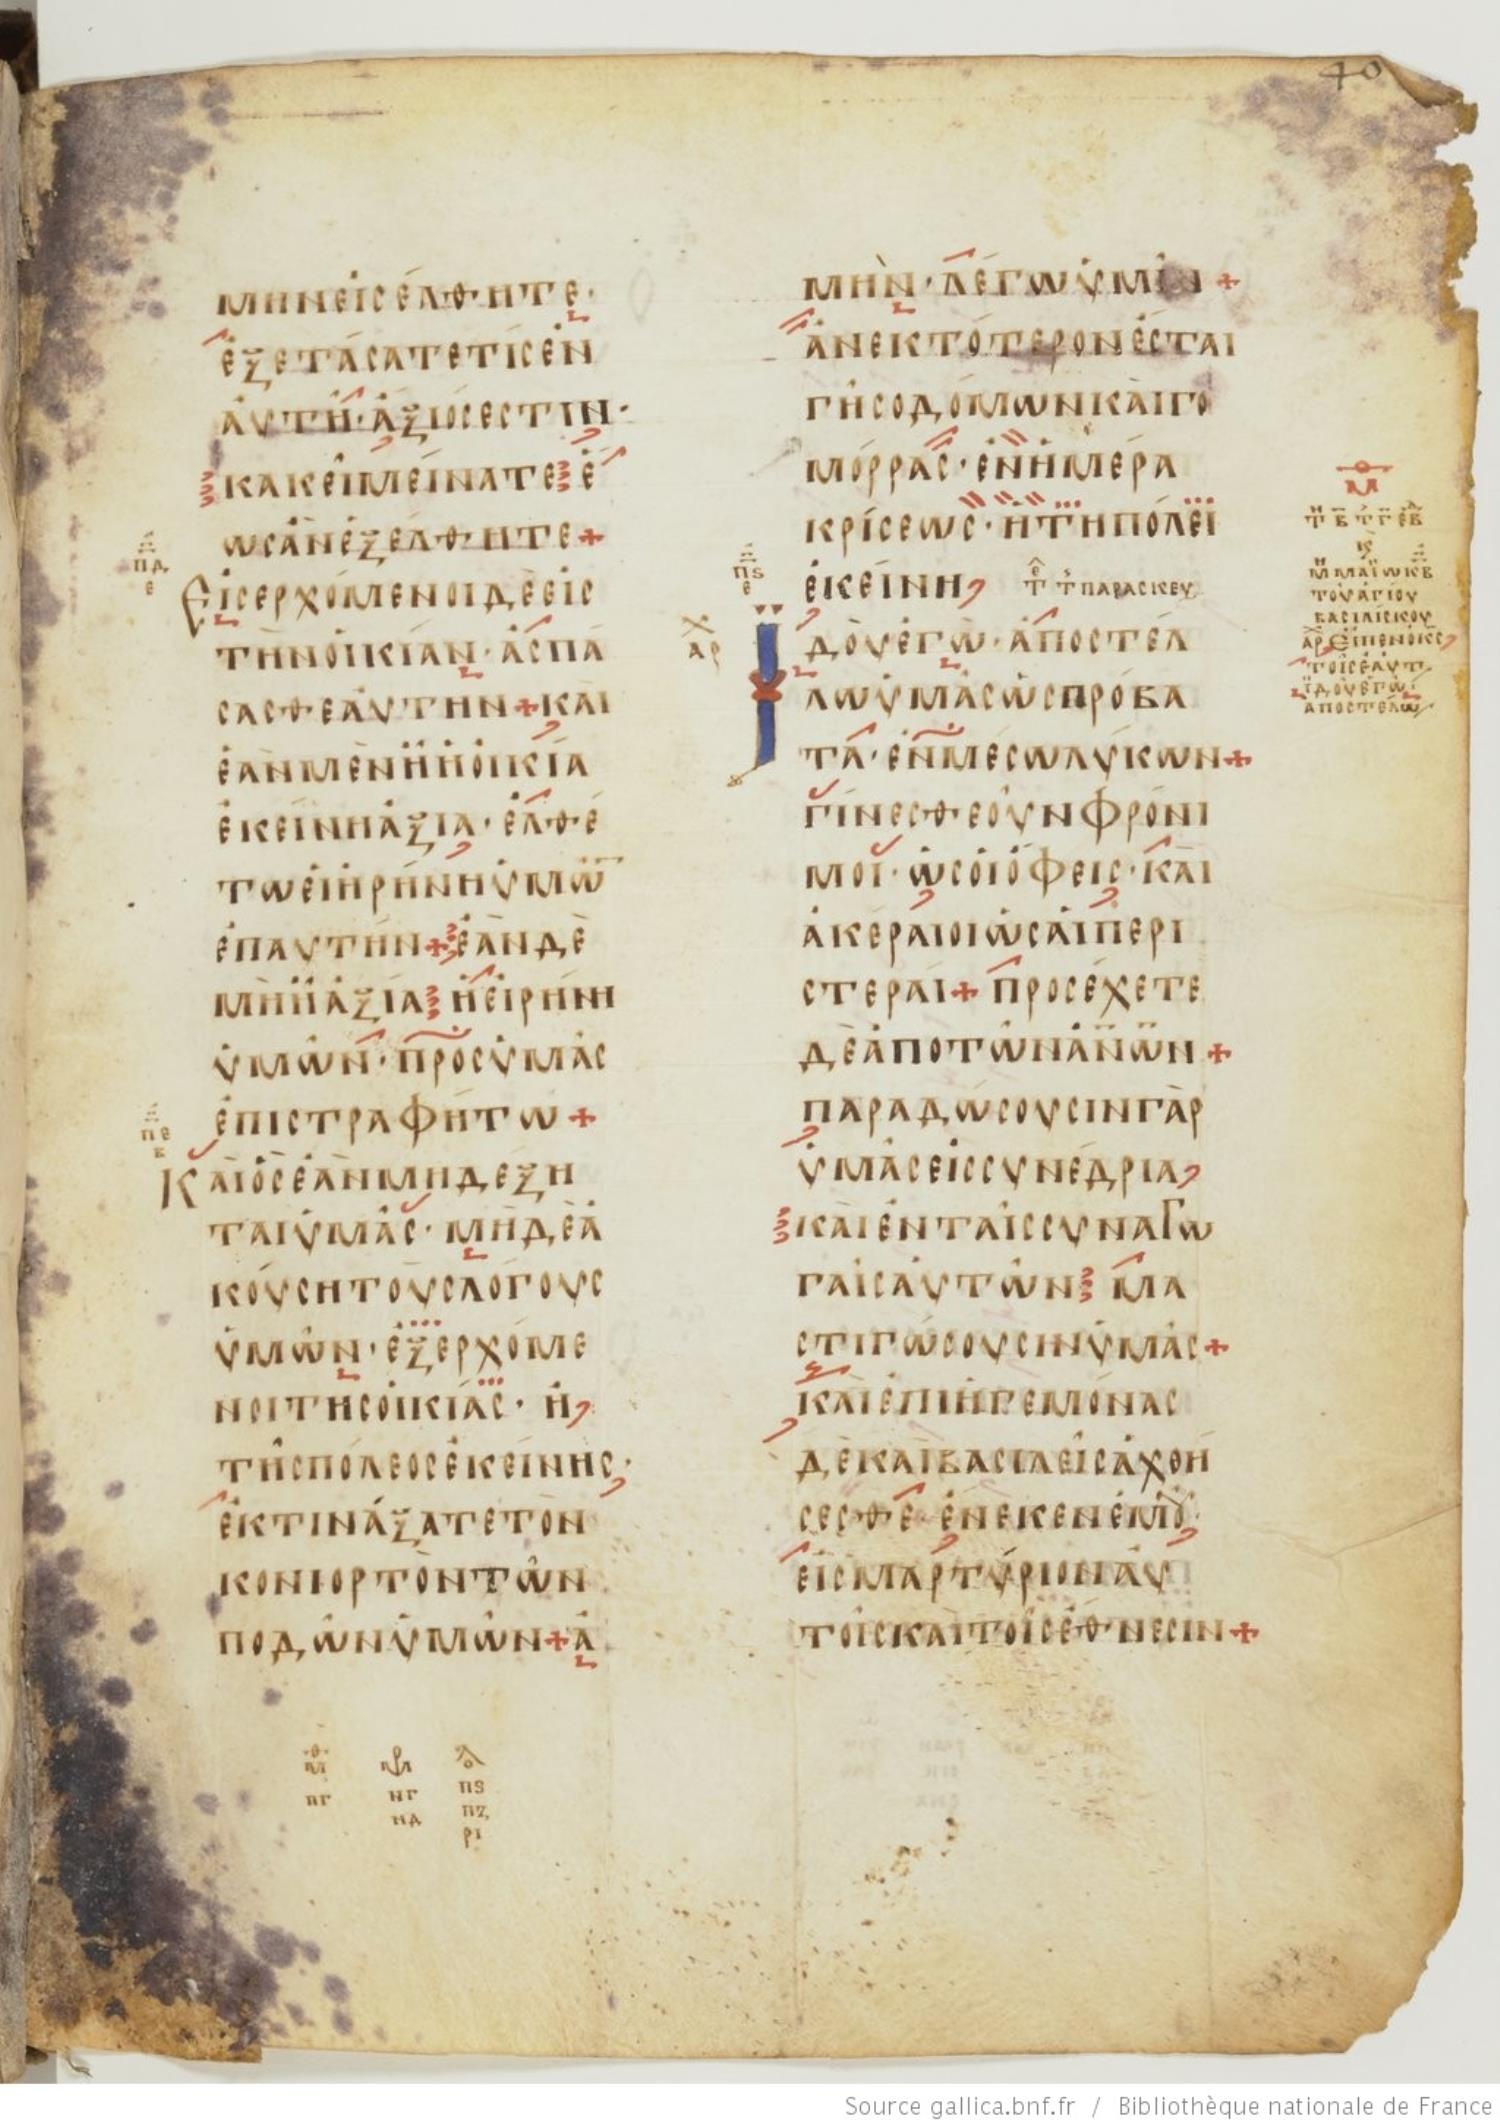 40
μὴνεἰσέλθητε·
ἐξετάσατετίςἐν
ἀυτῆ·ἄξιόσεστιν·
κακεῖμείνατεἕ
ωσἀνἐξέλθητε+
Εἰσερχόμενοιδὲεἰς
τὴνοἰκίαν·ἀσπά
σασθεἀυτήν+κὰι
ἐὰνμὲνἦἡοἰκία
ἐκείνηἀξία·ἐλθέ
τωεἰἡρήνηὑμῶ̅
ἐπαυτήν+ἐὰνδὲ
μὴἦἀξία ἡεἰρήνη
ὑμῶν·πρὸςὑμᾶς
ἐπιστραφήτω+
Κὰιὃσἐὰνμηδέξη
ταιὑμᾶς·μὴδὲἀ
κούσητοὺςλόγους
ὑμῶν·ἐξερχόμε
νοιτῆσοἰκίας·ἢ
τῆςπόλεοσἐκείνης·
ἐκτινάξατετὸν
κονιορτὸντῶν
ποδῶνὑμῶν+ἀ
μὴν·λέγωὑμῖν+
ἀνεκτότερονἔσται
γῆσοδόμωνκὰιγο
μόρρας·ἐνἡμέρα
κρίσεως·ἢτῆπόλει
ἐκείνη
παρασκευ
Ἰδοὺἐγὼ·ἀποστέλ
λωὑμᾶσὡςπρόβα
τα·ἐνμέσωλύκων+
γίνεσθεοὖνφρόνι
μοι·ὡσοἱὄφεις·κὰι
ἀκέραιοιὡσἁιπερι
στεραί+προσέχετε
δὲἀποτῶνἀν̅ω̅ν+
παραδώσουσινγὰρ
ὑμᾶσεἰςσυνέδρια
κὰιἐνταῖςσυναγω
γαῖσἀυτῶν μα
στιγώσουσινὑμᾶς+
κὰιἐπιἡγεμόνας
δὲκαὶβασιλεῖσἀχθή
σεσθε ἕνεκενἐμοῦ·
εἰςμαρτύριονἀυ
τοῖσκαὶτοῖσἔθνεσιν+
πδ
ε
πε
ε
πϛ
ε
ἀρ
τοῦἁγίου
βασιλίσκου
τοῖσἑαυτ
ἰδοὺἐγὼ
αποστελω
πγ
νγ
νδ
πϛ
πζ
ρι
Source gallica.bnf.fr / Bibliothèque nationale de France